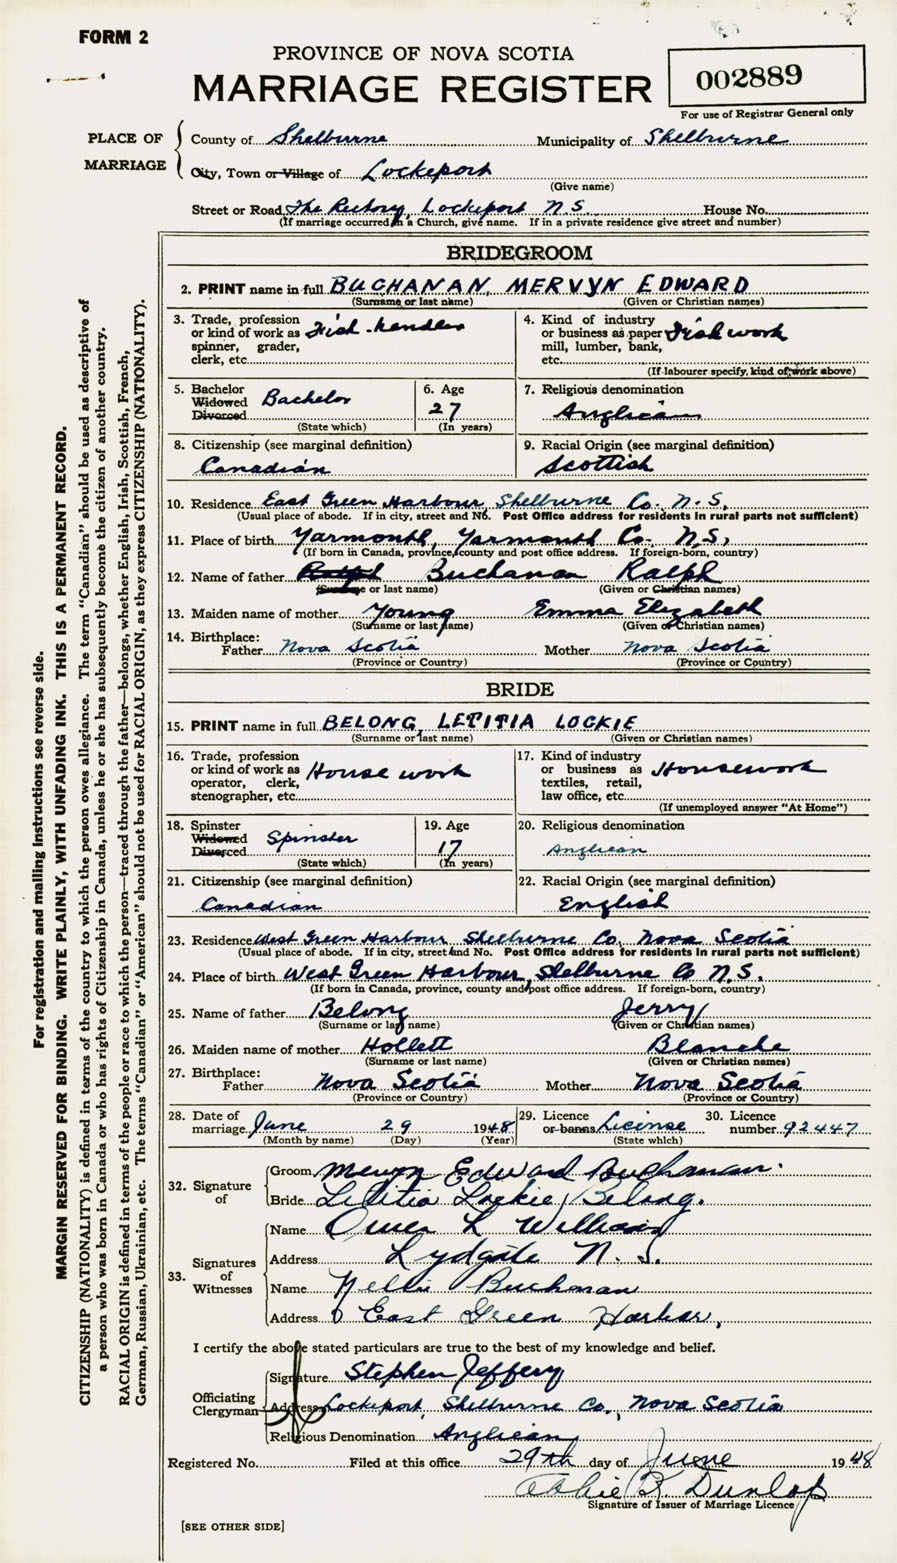 FORM 2
PROVINCE OF NOVA SCOTIA
MARRIAGE REGISTER
002889
For use of Registrar General only
PLACE OF MARRIAGE
County of Shelburne Municipality of Shelburne
City, Town or Village of Lockeport
(Give name)
Street or Road The Rectory, Lockeport N.S. House No.
(If marriage occurred in a Church, give name. If in a private residence give street and number)
BRIDEGROOM
2. PRINT name in full BUCHANAN, MERVYN EDWARD
(Surname or last name) (Given or Christian names)
3. Trade, profession or kind of work as spinner, grader, clerk, etc. Fish-handler
4. Kind of industry or business as paper mill, lumber, bank, etc. Fish work
(If labourer specify, kind of work above)
5. Bachelor Widowed Divorced Bachelor
(State which)
6. Age 27
(In years)
7. Religious denomination
Anglican
8. Citizenship (see marginal definition)
Canadian
9. Racial Origin (see marginal definition)
Scottish
10. Residence East Green Harbour, Shelburne Co. N.S.
(Usual place of abode. If in city, street and No. Post Office address for residents in rural parts not sufficient)
11. Place of birth Yarmouth, Yarmouth Co. N.S.
(If born in Canada, province, county and post office address. If foreign-born, country)
12. Name of father Ralph Buchanan Ralph
(Surname or last name) (Given or Christian names)
13. Maiden name of mother Young Emma Elizabeth
(Surname or last name) (Given or Christian names)
14. Birthplace:
Father Nova Scotia Mother Nova Scotia
(Province or Country) (Province or Country)
BRIDE
15. PRINT name in full BELONG, LETITIA LOCKIE
(Surname or last name) (Given or Christian names)
16. Trade, profession or kind of work as operator, clerk, stenographer, etc. House work
17. Kind of industry or business as textiles, retail, law office, etc. Housework
(If unemployed answer "At Home")
18. Spinster Widowed Divorced Spinster
(State which)
19. Age 17
(In years)
20. Religious denomination
Anglican
21. Citizenship (see marginal definition)
Canadian
22. Racial Origin (see marginal definition)
English
23. Residence West Green Harbour Shelburne Co. Nova Scotia
(Usual place of abode. If in city, street and No. Post Office address for residents in rural parts not sufficient)
24. Place of birth West Green Harbour, Shelburne Co N.S.
(If born in Canada, province, county and post office address. If foreign-born, country)
25. Name of father Belong Jerry
(Surname or last name) (Given or Christian names)
26. Maiden name of mother Hollett Blanche
(Surname or last name) (Given or Christian names)
27. Birthplace:
Father Nova Scotia Mother Nova Scotia
(Province or Country) (Province or Country)
28. Date of marriage June 29 1948
(Month by name) (Day) (Year)
29. Licence or banns License
(State which)
30. Licence number 92447
32. Signature of
Groom Mervyn Edward Buchanan.
Bride Letitia Lockie Belong.
33. Signatures of Witnesses
Name Owen L Williams
Address Lydgate N.S.
Name Nellie Buchanan
Address East Green Harbor,
I certify the above stated particulars are true to the best of my knowledge and belief.
Officiating Clergyman
Signature Stephen Jeffery
Address Lockeport, Shelburne Co., Nova Scotia
Religious Denomination Anglican
Registered No. Filed at this office 29th day of June 1948
B. Dunlop
Signature of Issuer of Marriage Licence
[SEE OTHER SIDE]
For registration and mailing instructions see reverse side.
MARGIN RESERVED FOR BINDING. WRITE PLAINLY, WITH UNFADING INK. THIS IS A PERMANENT RECORD.
CITIZENSHIP (NATIONALITY) is defined in terms of the country to which the person owes allegiance. The term "Canadian" should be used as descriptive of
a person who was born in Canada or who has rights of Citizenship in Canada, unless he or she has subsequently become the citizen of another country.
RACIAL ORIGIN is defined in terms of the people or race to which the person—traced through the father—belongs, whether English, Irish, Scottish, French,
German, Russian, Ukrainian, etc. The terms "Canadian" or "American" should not be used for RACIAL ORIGIN, as they express CITIZENSHIP (NATIONALITY).